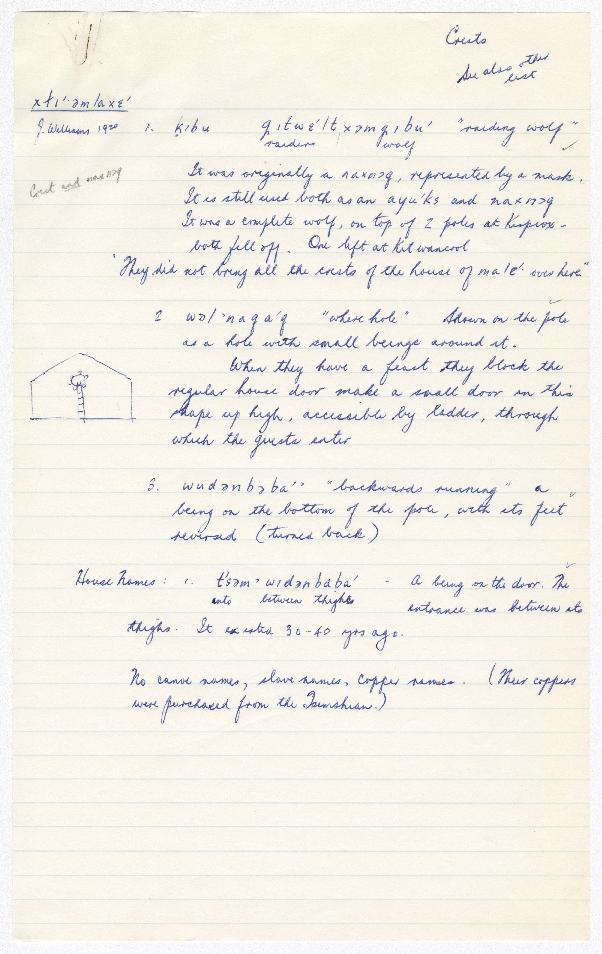 Crests
See also other
list
xłi'·əmlaxɛ'
J. Williams 1920 1. ḳibu g̣itwɛ'lt,xəmg̣ibu' "raiding wolf"
raiders wolf
It was originally a naxnɔg, represented by a mask.
Crest and naxnɔg
It is still used both as an ayu'ks and naxnɔg
It was a complete wolf, on top of 2 poles at Kispiox -
both fell off. One left at Kitwancool
"They did not bring all the crests of the house of ma'lɛ· over here"
2 "where hole" Shown on the pole
as a hole with small beings around it.
When they have a feast they block the
regular house door make a small door in this
shape up high, accessible by ladder, through
which the guests enter
3. wudənbəba'' "backwards running" a
being on the bottom of the pole, with its feet
reversed (turned back)
House Names: 1. t'səm·widənbəba' - A being on the door. The
into between thighs entrance was between its
thighs. It existed 30-40 yrs ago.
No canoe names, slave names, copper names. (Their coppers
were purchased from the Tsimshian.)